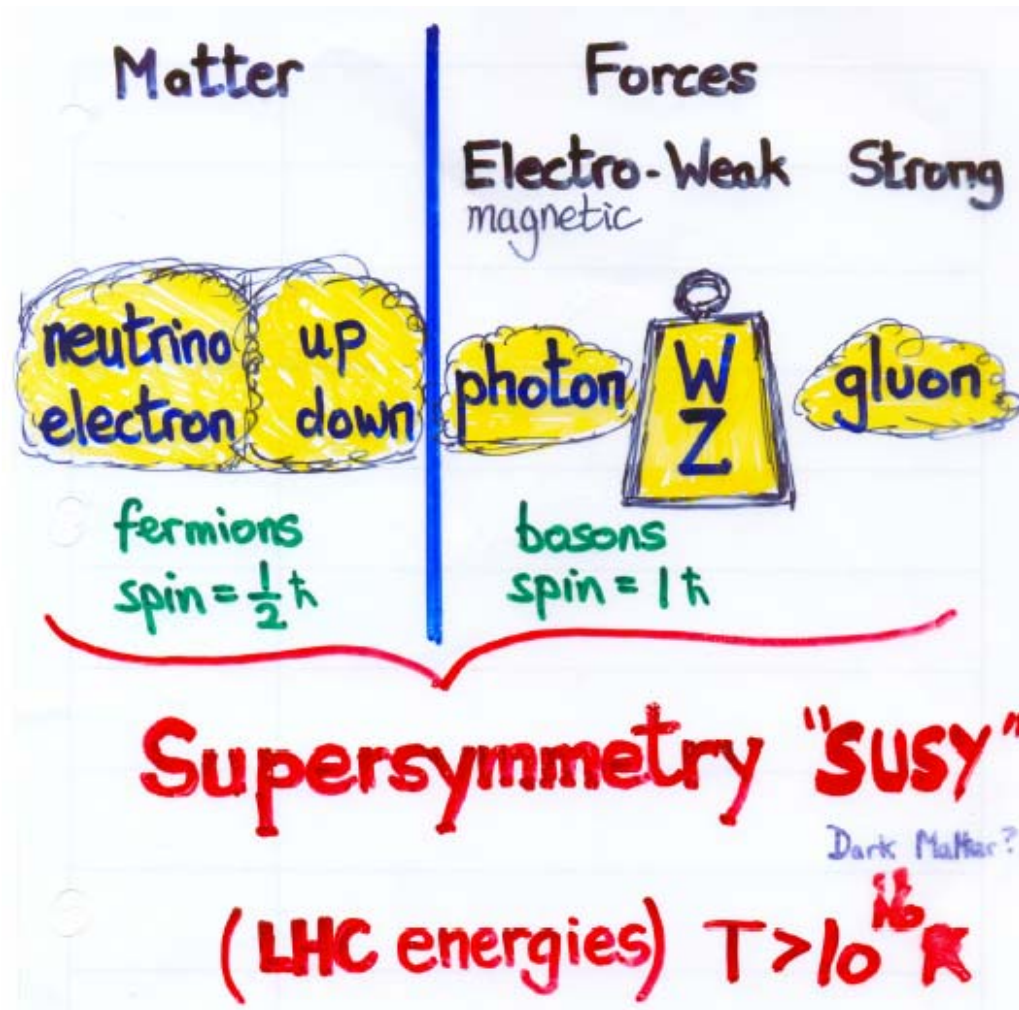 Matter
Forces
Electro-Weak Strong
magnetic
neutrino
electron
up
down
photon
W
Z
gluon
fermions
spin = ½ ħ
bosons
spin = 1 ħ
Supersymmetry "SUSY"
Dark Matter?
(LHC energies) T>10 K